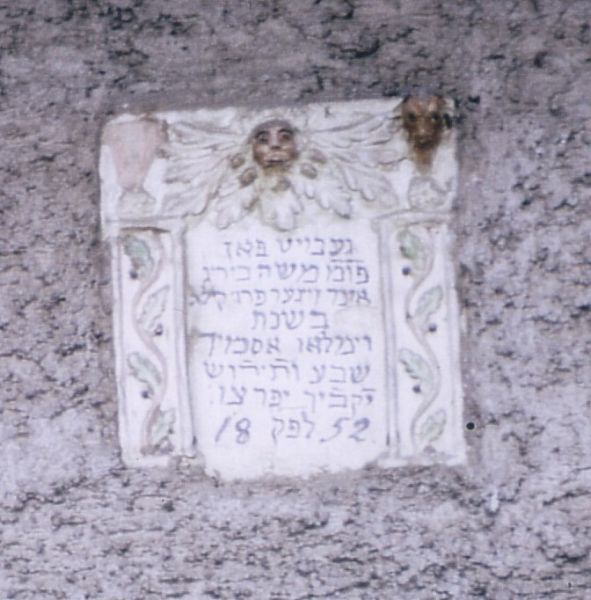 געבוייט פאן
פו״מ משה בירג
אונד זיינער פרוי
בשנת
וימלאו אסמיך
שבע ותירוש
יקביך יפרצו
18 לפק 52